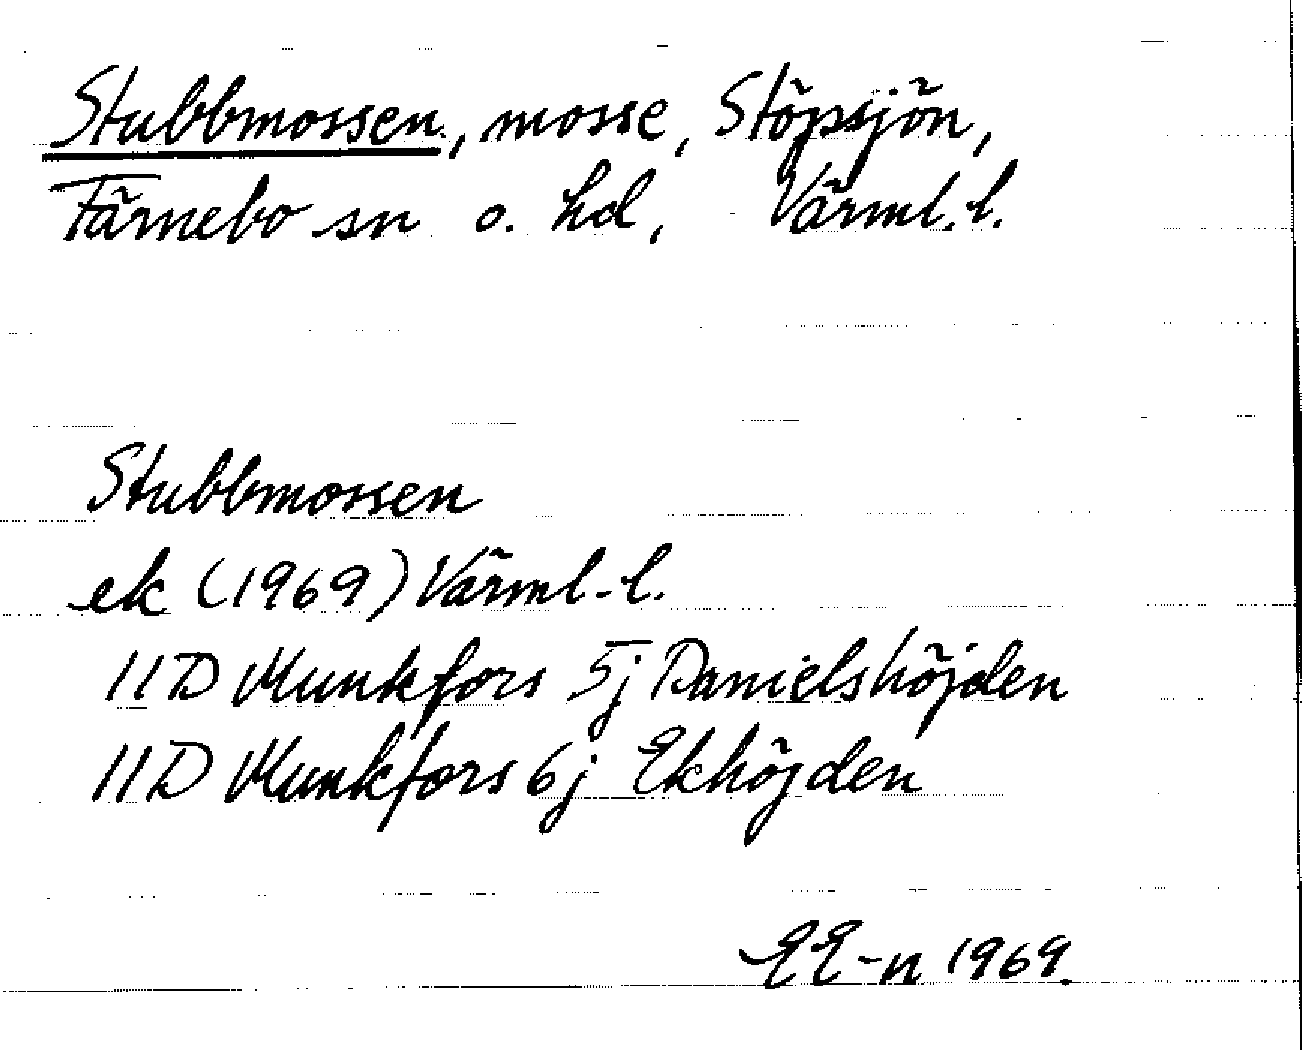 Stubbmossen, mosse, Stöpsjön,
Färnebo sn o. hd, Värml. l.
Stubbmossen
ek (1969) Värml. l.
11D Munkfors 5j Danielshöjden
11D Munkfors 6j Ekhöjden
EE-n 1969.